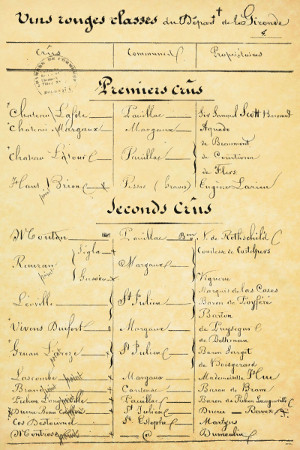 Vins rouges classés du Départ^t de la Gironde
Crûs Communes Propriétaires
Premiers Crûs
Chateau Lafite Pauillac Sir Samuel Scott
Chateau Margaux Margaux Aguado
de Beaumont
Chateau Latour Pauillac de Courtivron
de Flers
Haut Brion Pessac (Graves) Eugène Larieu
Seconds Crûs
Mouton Pauillac B^on N. de Rothschild
Rauzan Ségla Margaux Comtesse de Castelpers
Viguerie
Marquis de las Cases
Léoville St Julien Baron de Poyféré
Barton
Vivens Durfort Margaux de Puységur
de Bethmann
Gruau Laroze St Julien Baron Sarget
de Boisgerard
Lascombe Margaux Mademoiselle Hue
Brane Cantenac Baron de Brane
Pichon Longueville Pauillac Baron de Pichon Longueville
Ducru Beau Caillou St Julien Ducru Ravez
Cos Destournel St Estèphe Martyns
Montrose Dumoulin